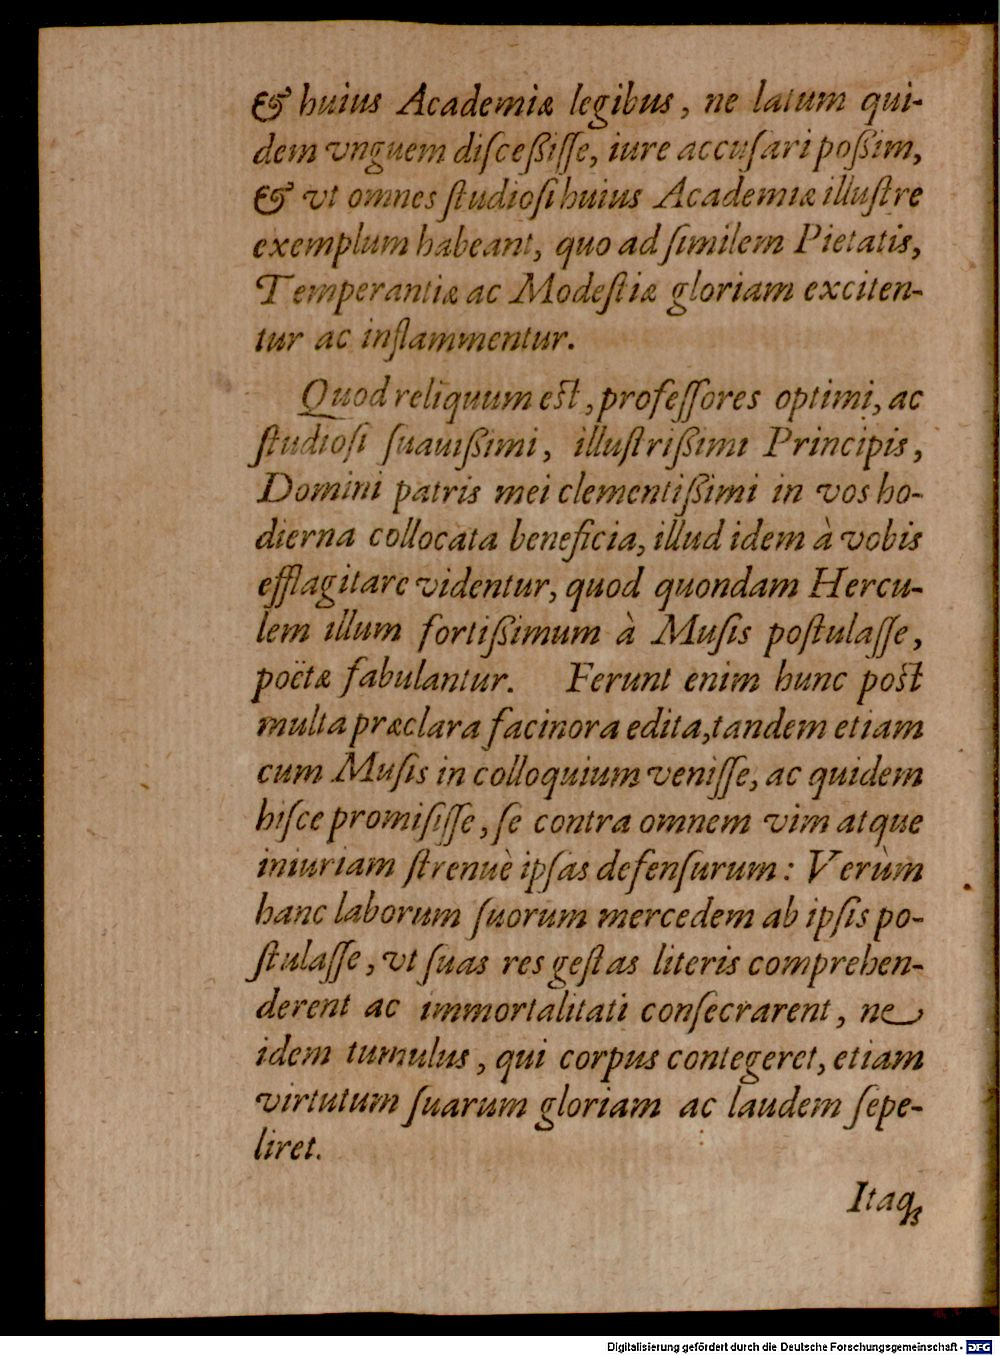 & huius Academiæ legibus, ne latum qui-
dem vnguem diſceßiſſe, iure accuſari poßim,
& vt omnes ſtudioſi huius Academiæ illuſtre
exemplum habeant, quo ad ſimilem Pietatis,
Temperantiæ ac Modeſtiæ gloriam exciten-
tur ac inflammentur.
Quod reliquum eſt, profeſſores optimi, ac
ſtudioſi ſuauißimi, illuſtrißimi Principis,
Domini patris mei clementißimi in vos ho-
dierna collocata beneficia, illud idem à vobis
efflagitare videntur, quod quondam Hercu-
lem illum fortißimum à Muſis poſtulaſſe,
poëtæ fabulantur. Ferunt enim hunc poſt
multa præclara facinora edita, tandem etiam
cum Muſis in colloquium veniſſe, ac quidem
hiſce promiſiſſe, ſe contra omnem vim atque
iniuriam ſtrenuè ipſas defenſurum: Verùm
hanc laborum ſuorum mercedem ab ipſis po-
ſtulaſſe, vt ſuas res geſtas literis comprehen-
derent ac immortalitati conſecrarent, ne
idem tumulus, qui corpus contegeret, etiam
virtutum ſuarum gloriam ac laudem ſepe-
liret.
Itaqꝫ
Digitalisierung gefördert durch die Deutsche Forschungsgemeinschaft - DFG